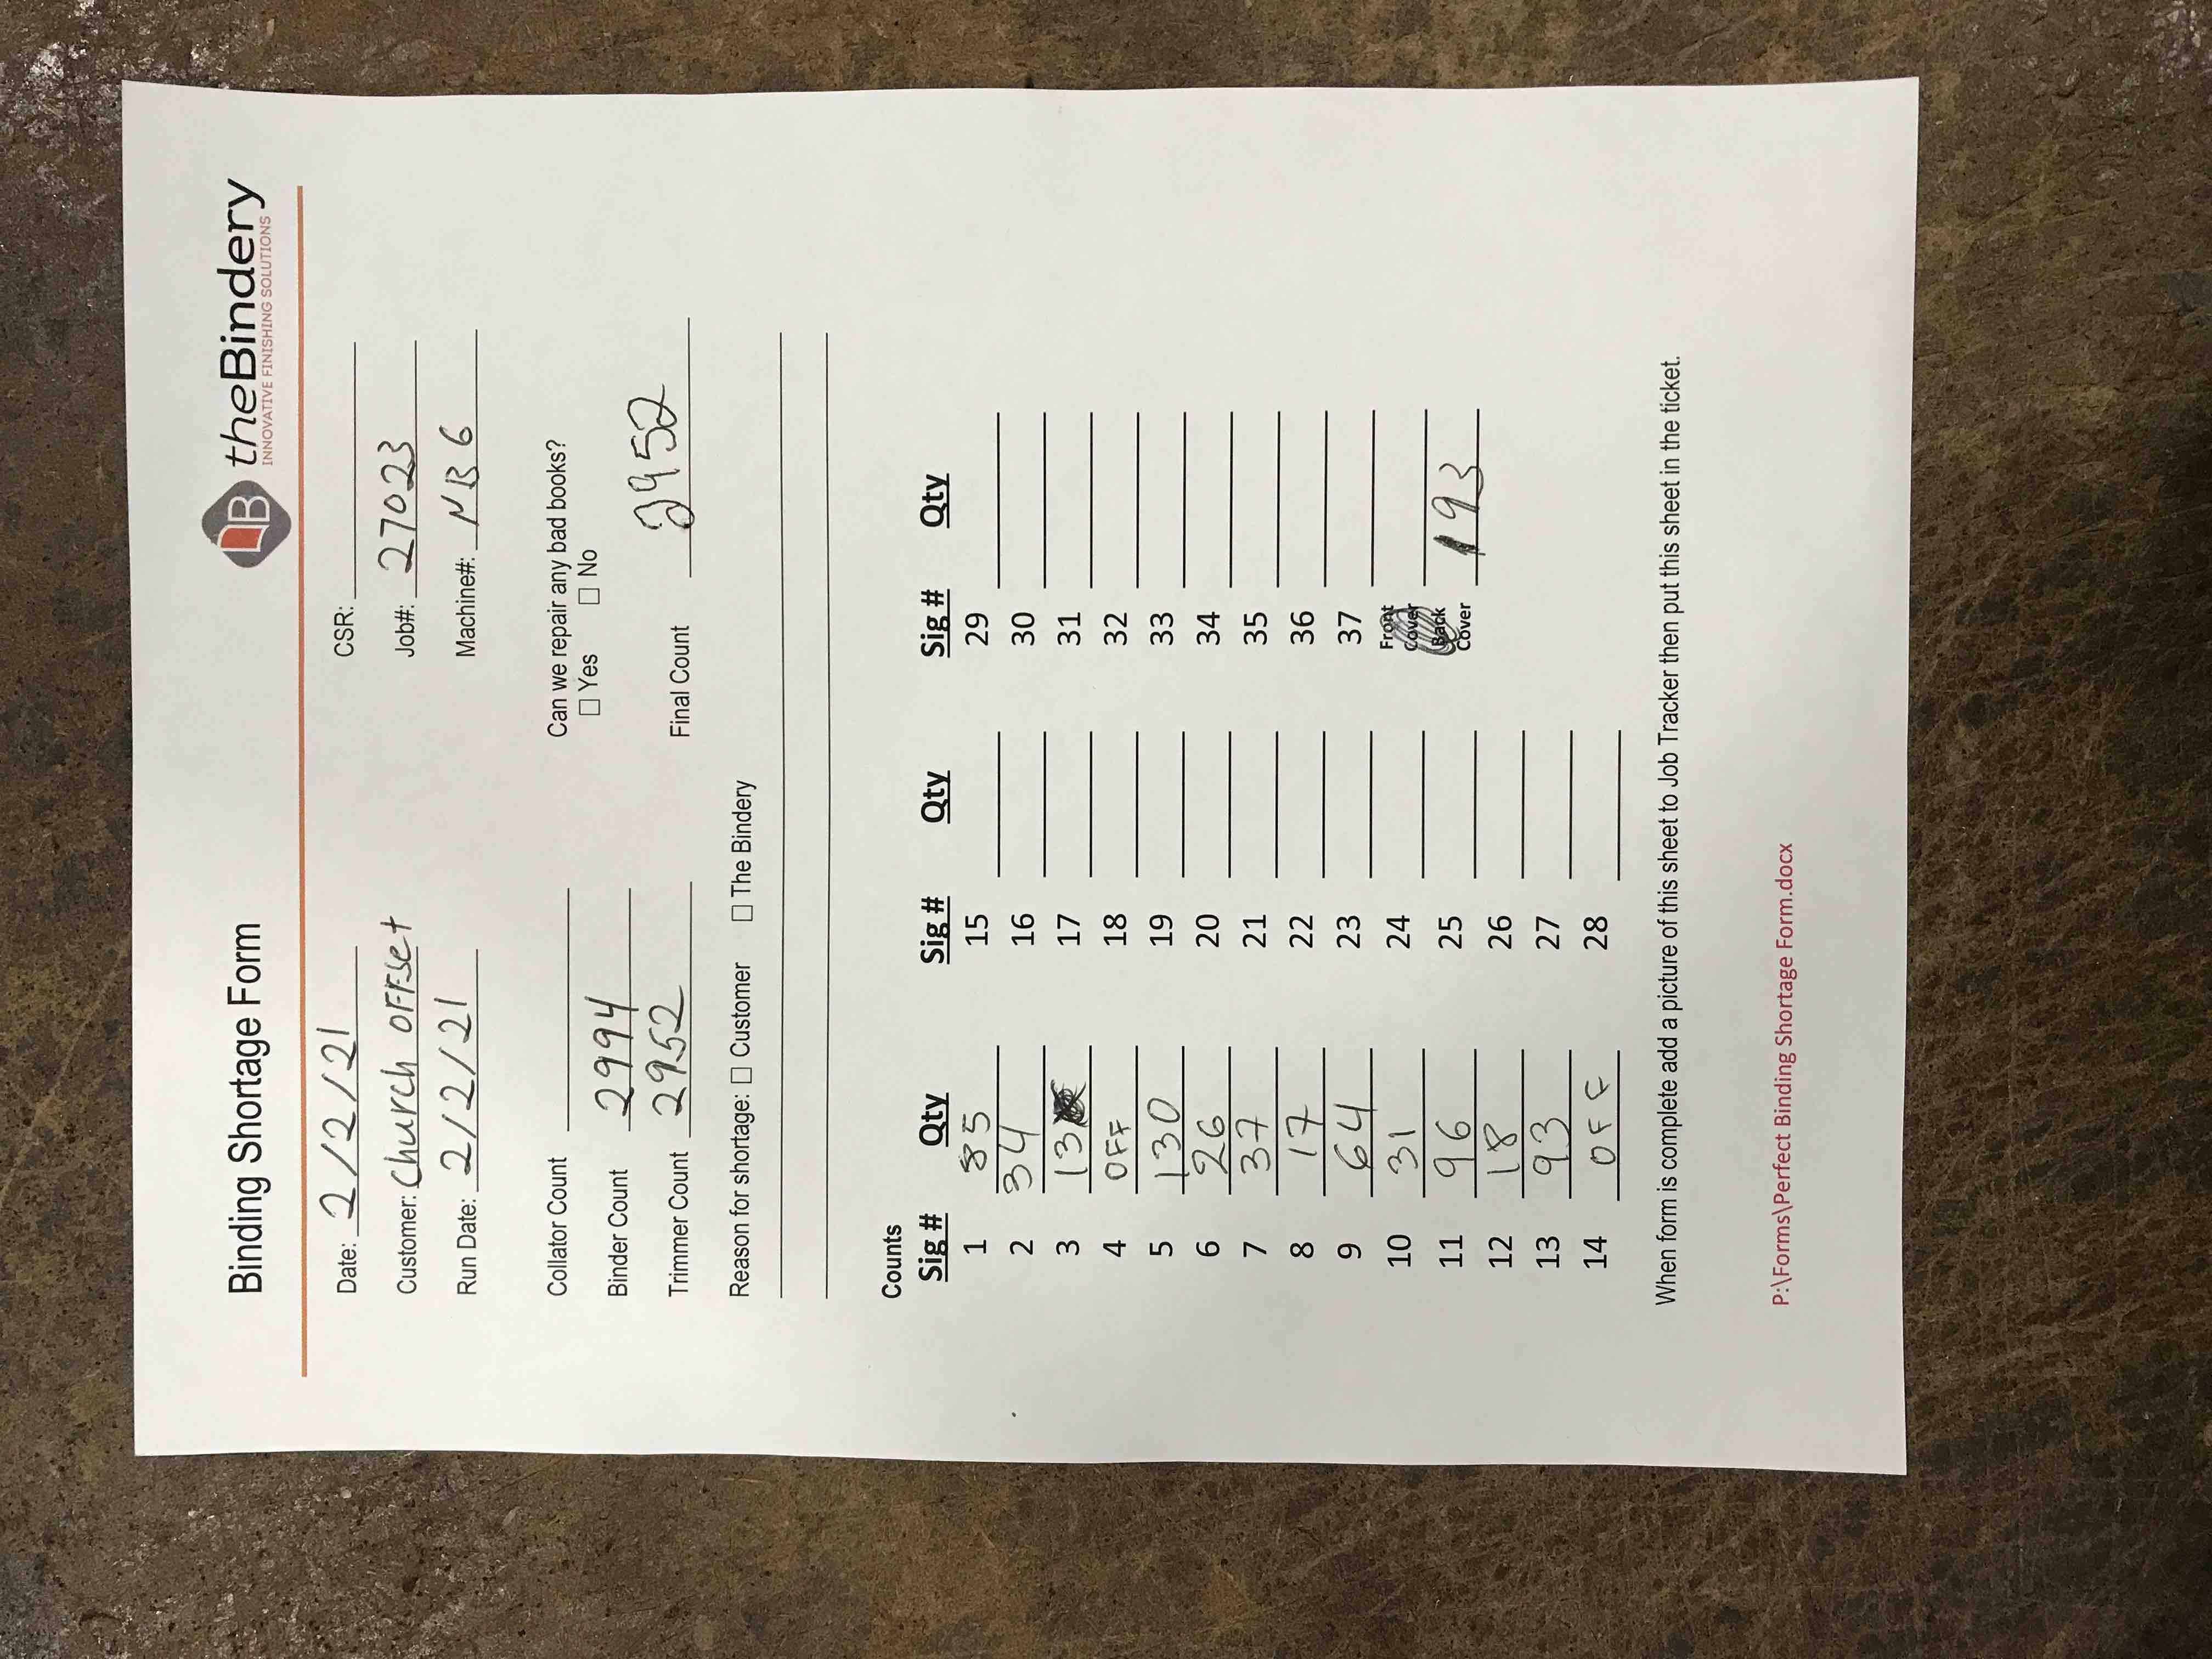 Binding Shortage Form
theBindery
INNOVATIVE FINISHING SOLUTIONS
Date: 2/2/21 CSR:
Customer: Church OFFset Job#: 27023
Run Date: 2/2/21 Machine#: NB6
Collator Count Can we repair any bad books?
Binder Count 2994 ☐ Yes ☐ No
Trimmer Count 2952 Final Count 2952
Reason for shortage: ☐ Customer ☐ The Bindery
Counts
Sig # Qty Sig # Qty Sig # Qty
1 85 15 29
2 34 16 30
3 13 17 31
4 OFF 18 32
5 130 19 33
6 26 20 34
7 37 21 35
8 17 22 36
9 64 23 37
10 31 24 Front Cover
11 96 25 Back Cover 193
12 18 26
13 93 27
14 OFF 28
When form is complete add a picture of this sheet to Job Tracker then put this sheet in the ticket.
P:\Forms\Perfect Binding Shortage Form.docx